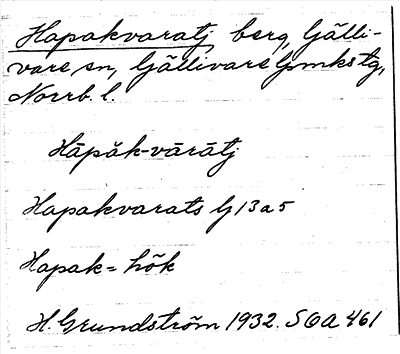 Hapakvaratj, berg, Gälli-
vare sn, Gällivare lpmks tg,
Norrb. l.
Hāpăk-vārātj
Hapakvarats G 13 a 5
Hapak = hök
H. Grundström 1932. SOA 461